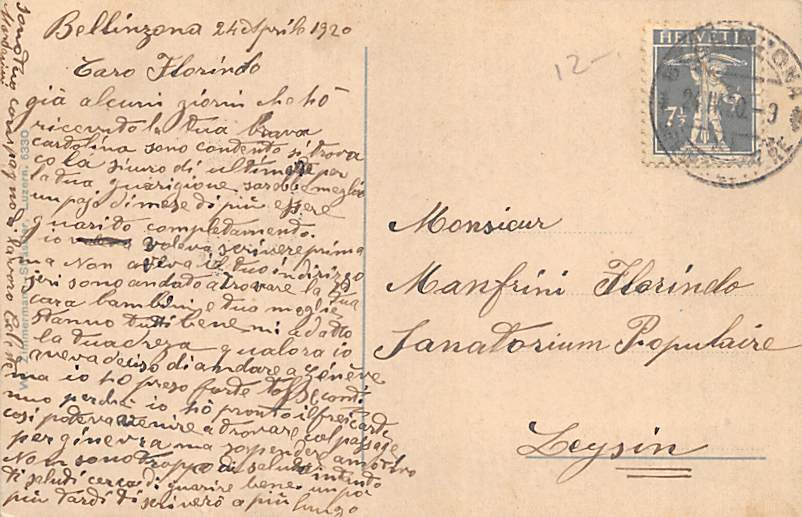 Bellinzona 24 Aprile 1920
Caro Florindo
già alcuni giorni che hò
ricevuto la tua brava
cartolina sono contento si trova
co la sicuro di ultimate per
la tua guarigione sarebbe meglio
un pajo di mese di più e essere
guarito completamento.
io voleva scrivere prima
ma Non aveva il tuo indirizzo
jeri sono andato a trovare la tua
cara bambini e tuo moglie
stanno tutti bene mi a dato
la tua qualora io
aveva deciso di andare a Genève
ma io hò preso forte tosse conti
nuo perchè io hò pronto il
così poteva venire a trovare col passage
per ginevra ma sospendere
Non sono troppo di salute intanto
ti saludi cerca di guarire bene un pò
più tardi ti scriverò a più lungo
sono tuo compagno di lavoro
12-.
HELVETIA
7½
BELLINZONA
Monsieur
Manfrini Florindo
Sanatorium Populaire
Leysin
Zimmermann Luzern. 6330